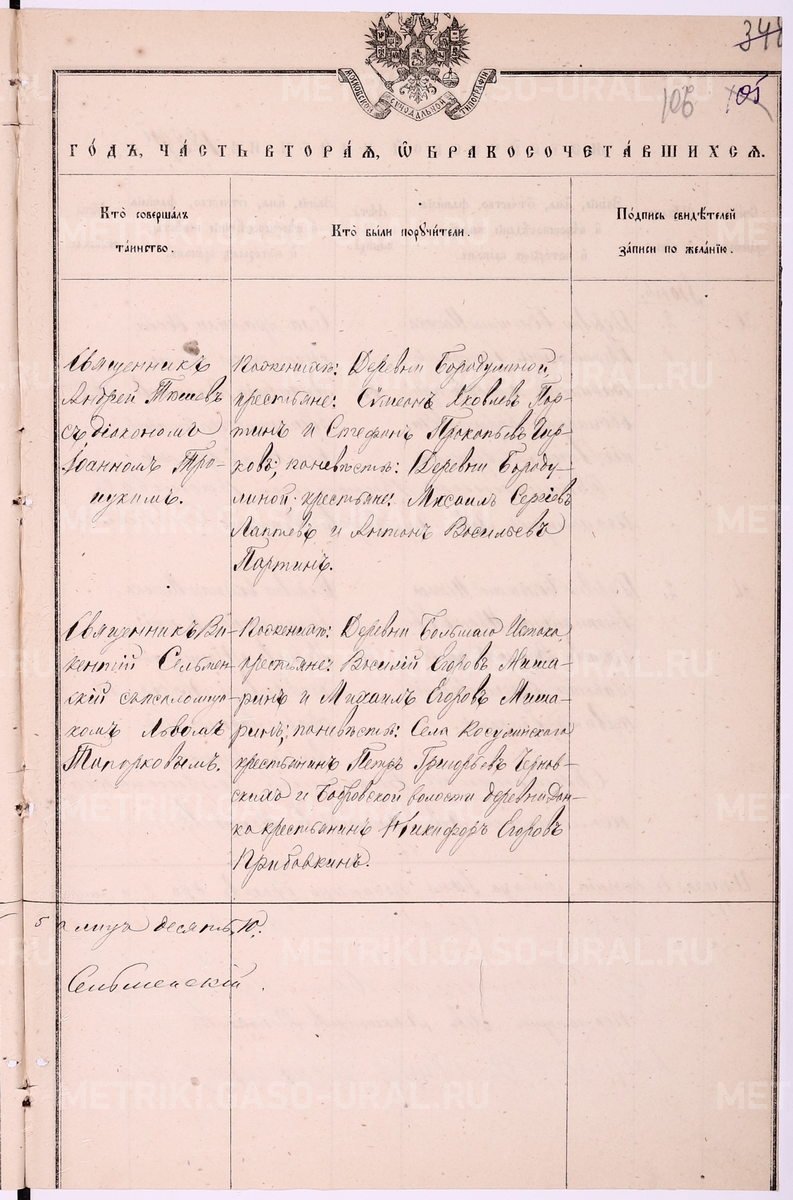 344
106 105
МОСКОВСКОЙ СѴНОДАЛЬНОЙ ТИПОГРАФІИ
ГО́ДЪ, ЧА́СТЬ ВТОРА́Я, Ѡ БРАКОСОЧЕТА́ВШИХСЯ.
Кто̀ совершалъ
та́инство.
Кто̀ бы́ли пору́чители.
По́дпись свидѣ́телей
за́писи по жела́нію.
Священникъ
Андрей
съ діакономъ
Іоанномъ Тро-
пухимъ.
По женихѣ: Деревни Бородулиной,
крестьяне: Сѵмеонъ Яковлевъ Пор-
тинъ и Стефанъ Прокопьевъ
ковъ; по невѣстѣ: Деревни Бороду-
линой, крестьяне: Михаилъ Сергіевъ
Лаптевъ и Антонъ Васильевъ
Портинъ.
Священникъ Ви-
кентій Сельмен-
скій съ псаломщи-
комъ Львомъ
Топорковымъ.
По женихѣ: Деревни Большаго Истока,
крестьяне: Василій Егоровъ Миша-
ринъ и Михаилъ Егоровъ Миша-
ринъ; по невѣстѣ: Села Косулинскаго
крестьянинъ Петръ Григорьевъ Чернов-
скихъ и Бобровской волости деревни
крестьянинъ Никифоръ Егоровъ
Прибавкинъ.
5 а лицъ десять, 10.
Сельменскій.
METRIKI.GASO-URAL.RU